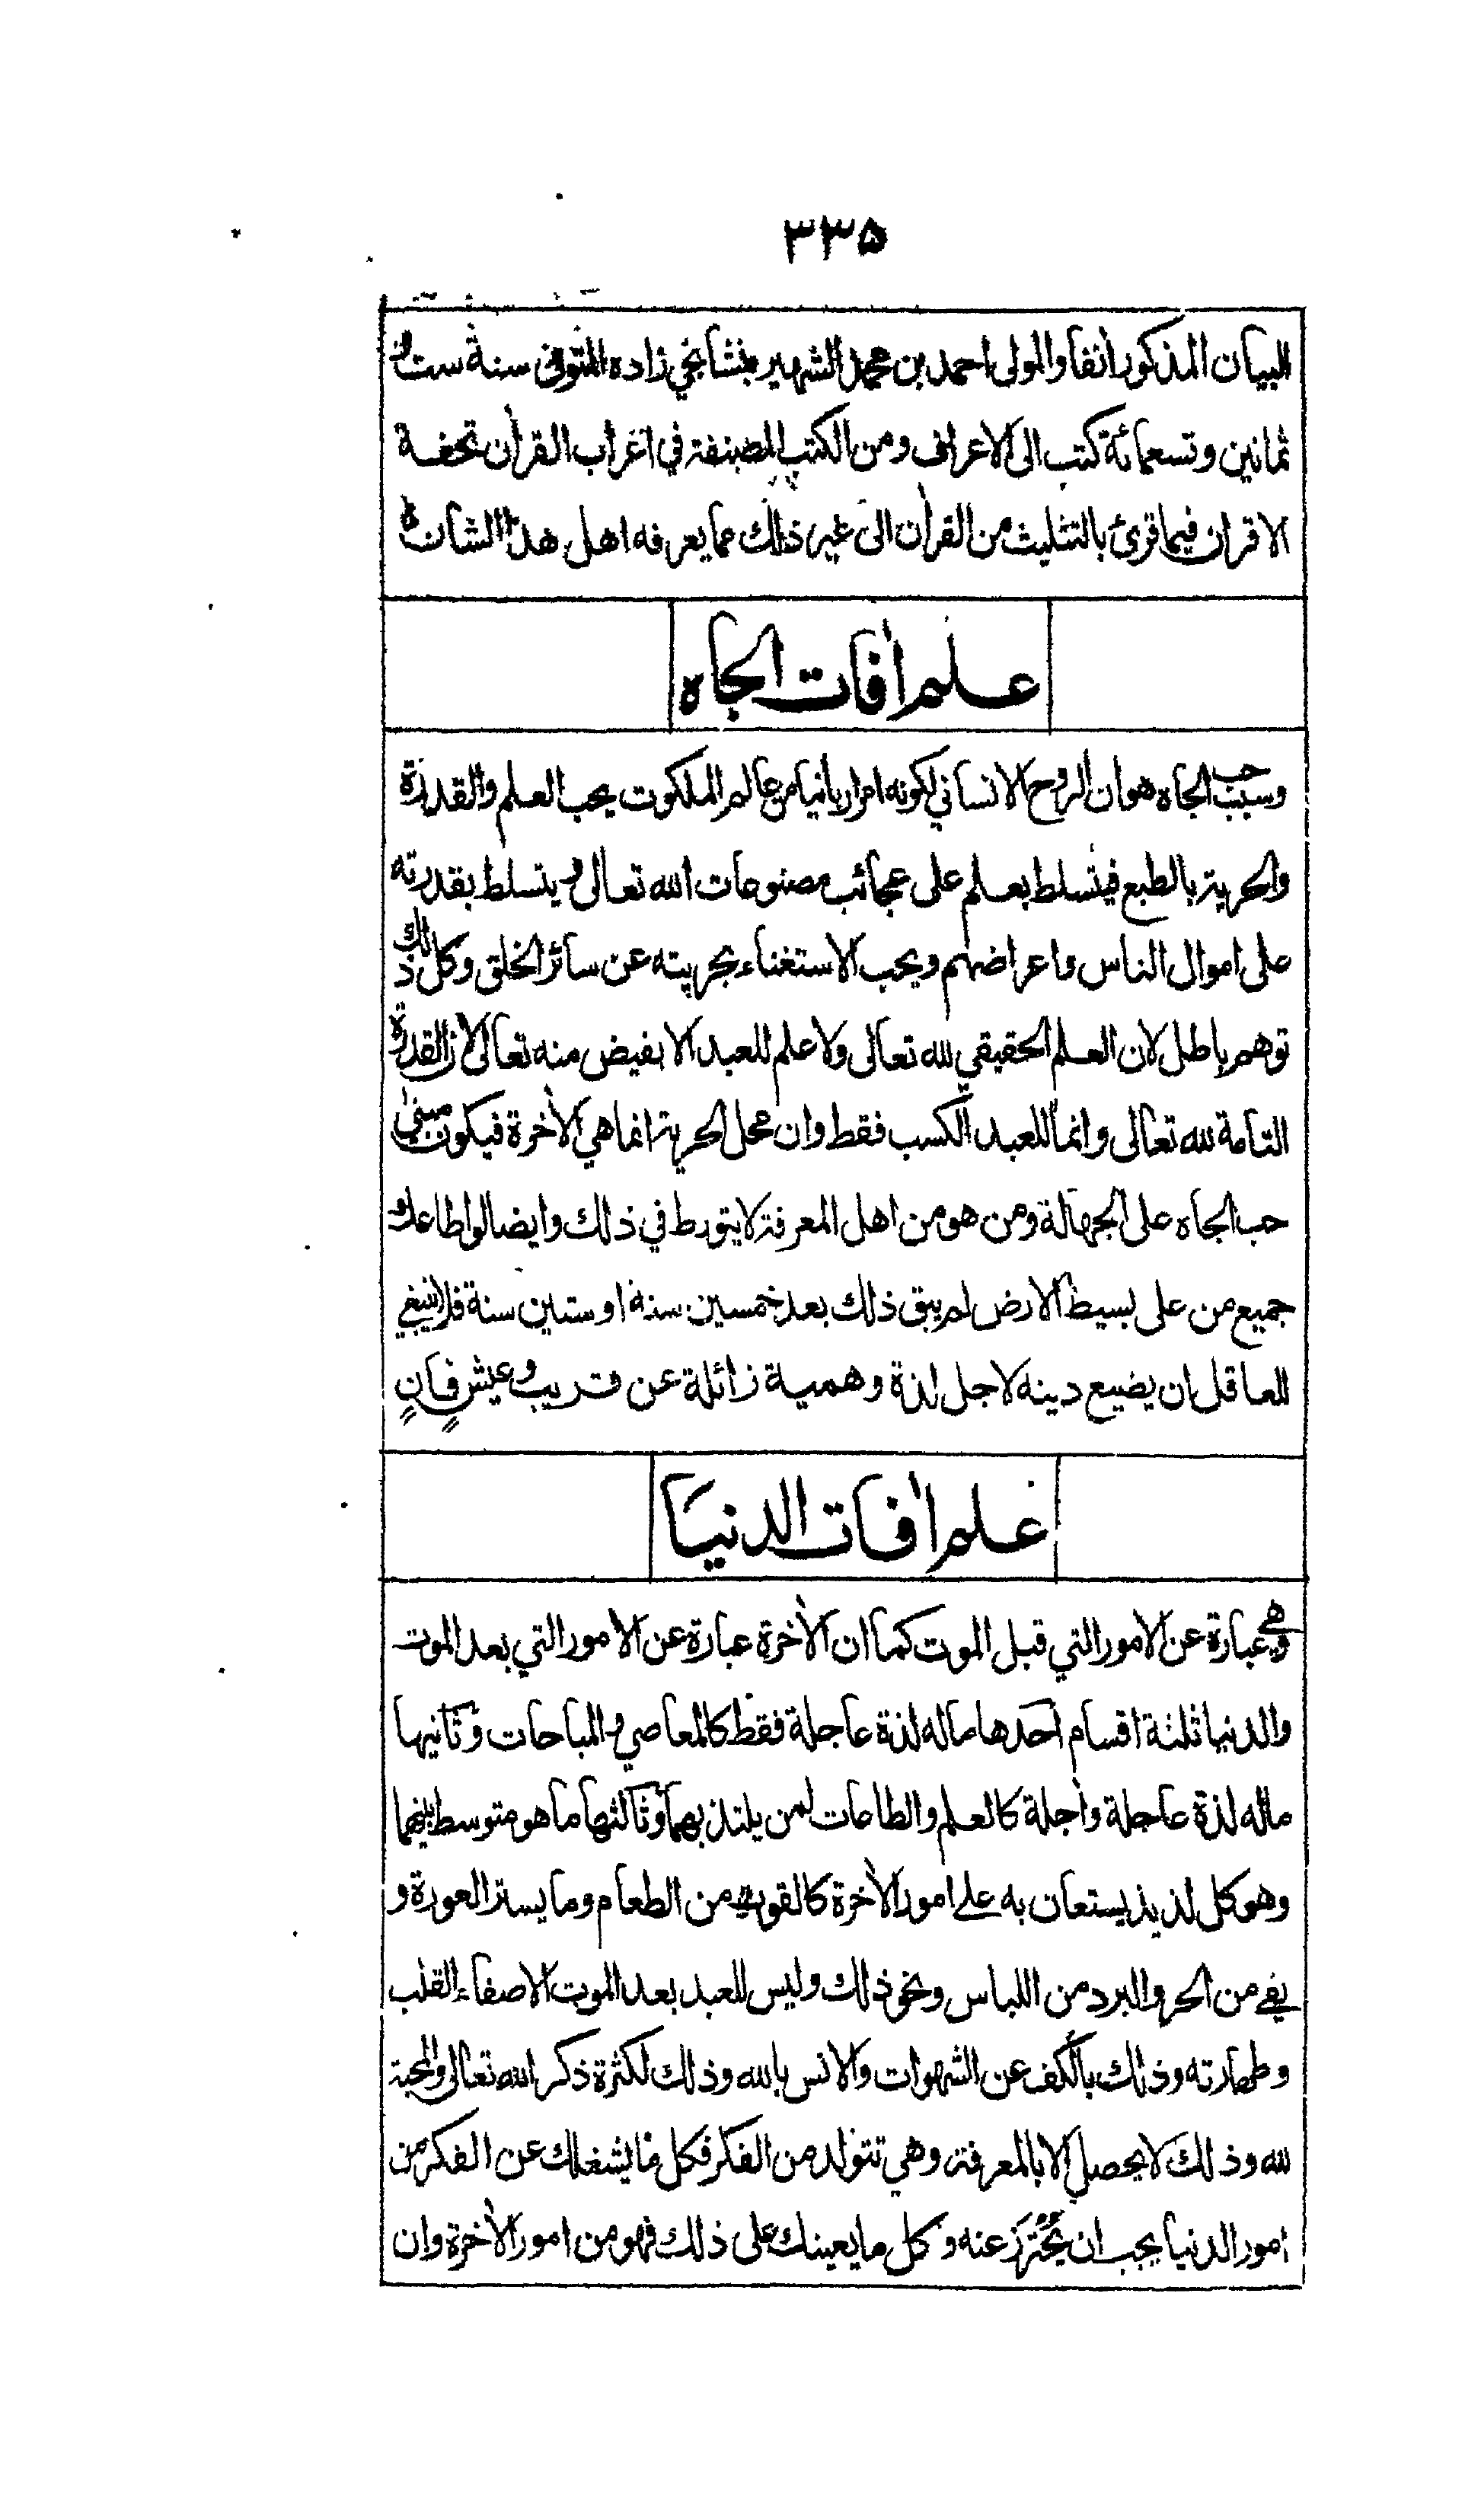 ٣٣٥
البيان المذكور انفا والمولى احمد بن محمد الشهير بنشانجي زاده المتوفى سنة ست و
ثمانين وتسعمائة كتب الى الاعراف ومن الكتب المصنفة في اغراب القرآن تحفة
الاقران فيما قرئ بالتثليث من القرآن الى غير ذلك مما يعرفه اهل هذا الشان
علم آفات الجاه
وسبب حب الجاه هو ان الروح الانساني لكونه امرا ربانيا من عالم الملكوت يحب العلم والقدرة
والحرية بالطبع فيتسلط بعلم على عجائب مصنوعات الله تعالى ويتسلط بقدرته
على اموال الناس واعراضهم ويحب الاستغناء بحريته عن سائر الخلق وكل ذلك
توهم باطل لان العلم الحقيقي لله تعالى ولا علم للعبد الا بفيض منه تعالى لان القدرة
التامة لله تعالى وانما للعبد الكسب فقط وان محل الحرية انما هي الآخرة فيكون مبنى
حب الجاه على الجهالة ومن هو من اهل المعرفة لا يتورط في ذلك وايضا لو اطاعك
جميع من على بسيط الارض لم يبق ذلك بعد خمسين سنة او ستين سنة فلا ينبغي
للعاقل ان يضيع دينه لاجل لذة وهمية زائلة عن قريب وعيش فانٍ
علم آفات الدنيا
وهي عبارة عن الامور التي قبل الموت كما ان الآخرة عبارة عن الامور التي بعد الموت
والدنيا ثلثة اقسام احدها ماله لذة عاجلة فقط كالمعاصي والمباحات وثانيها
ماله لذة عاجلة وآجلة كالعلم والطاعات لمن يلتذ بهما وثالثها ما هو متوسط بينهما
وهو كل لذيذ يستعان به على امور الآخرة كالقوت من الطعام وما يستر العورة و
يقي من الحر والبرد من اللباس ونحو ذلك وليس للعبد بعد الموت الا صفاء القلب
وطهارته وذلك بالكف عن الشهوات والانس بالله وذلك لكثرة ذكر الله تعالى والمحبة
لله وذلك لا يحصل الا بالمعرفة وهي تتولد من الفكر فكل ما يشغلك عن الفكر من
امور الدنيا يجب ان يُحْتَرَز عنه وكل ما يعينك على ذلك فهو من امور الآخرة وان